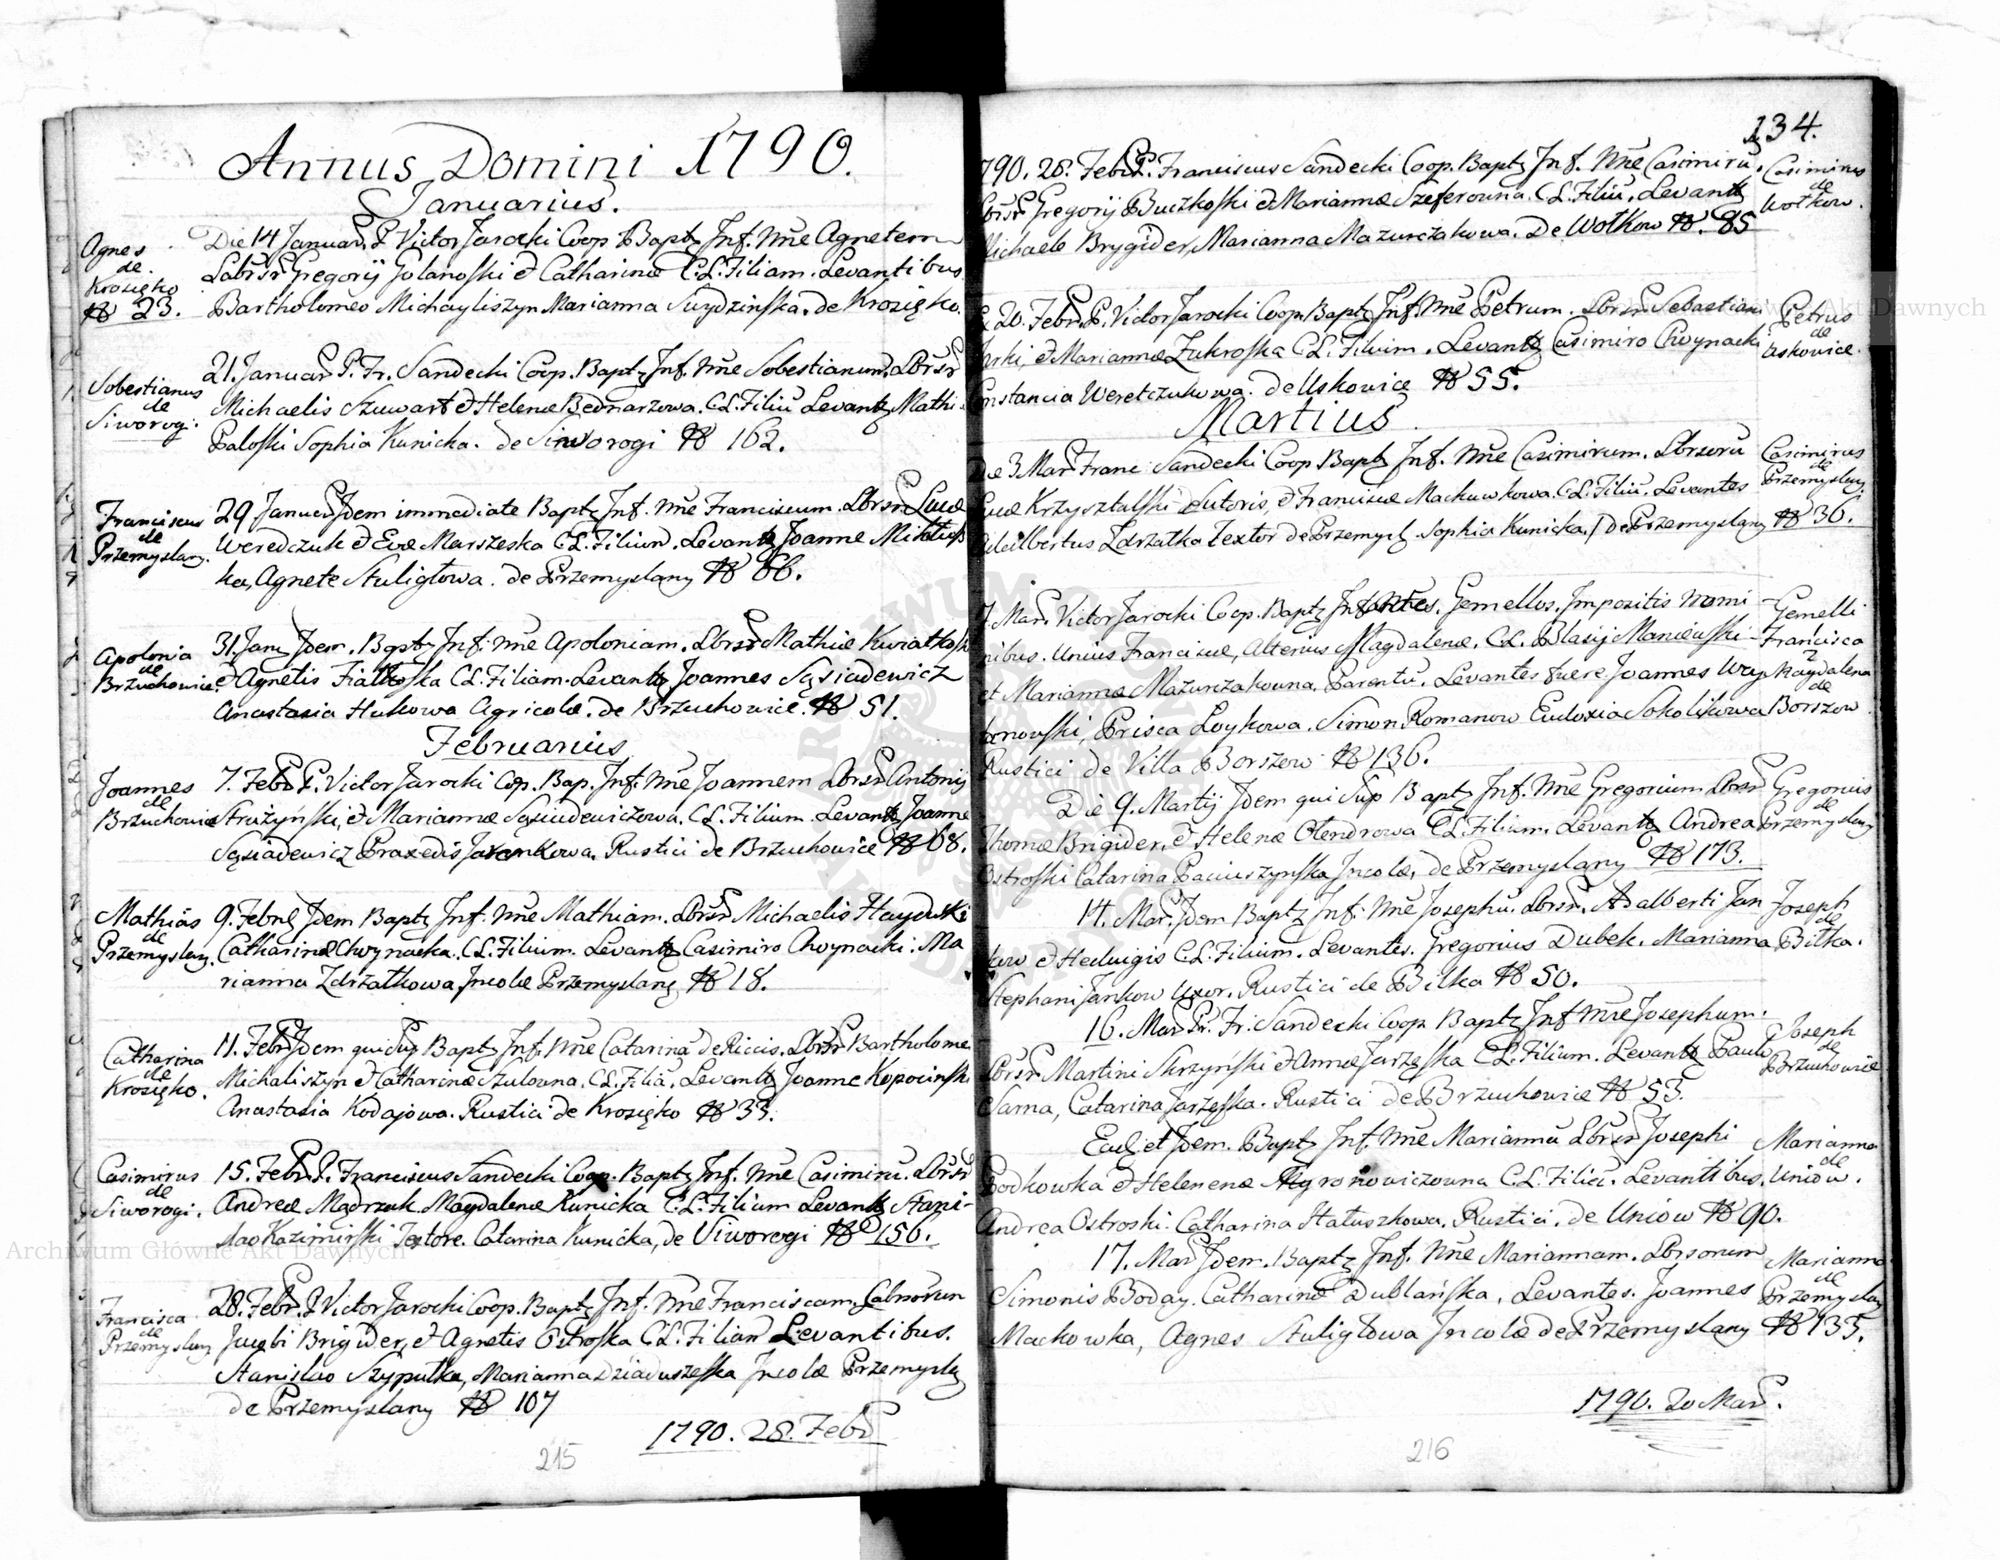 Annus Domini 1790.
Januarius.
Agnes
de
Krosięko
№ 23.
Die 14 Januar. P. Victor Jarocki Coop. Bapt. Inf. nne Agnetem
Labrsr Gregorij Golanoski & Catharinæ C.L. Filiam. Levantibus
Bartholomeo Michayliszyn Marianna Suydzinska. de Krosięko.
Sobestianus
de
Siworogi.
21. Januar P. Fr. Sandecki Coop. Bapt. Inf. nne Sobestianum. Lbrsr
Michaelis Szuwart & Helenæ Bednarzowa. C.L. Filiũ Levant. Mathi
Paloski Sophia Kunicka. de Siworogi № 162.
Franciscus
de
Przemyslany.
29 Januar Idem immediate Bapt. Inf. nne Franciscum. Lbrsr Lucæ
Weredczuk & Evæ Marszeska C.L. Filium. Levant. Joanne Mikluss
ka, Agnete Stuligłowa. de Przemyslany № 66.
Apolonia
de
Brzuchowice.
31. Jany Idem. Bapt. Inf. nne Apoloniam. Lbrsr Mathiæ Kwiatkosk
& Agnetis Fiałkoska C.L. Filiam. Levant. Joannes Sąsiadewicz
Anastasia Hukowa Agricolæ. de Brzuchowice. № 51.
Februarius
Joannes
de
Brzuchowice
7. Febr. P. Victor Jarocki Cop. Bap. Inf. nne Joannem Lbrsr Antonij
Strużyński, & Mariannæ Sąsiadewiczowa. C.L. Filium. Levant. Joanne
Sąsiadewicz Praxedis Jarankowa. Rustici de Brzuchowice № 68.
Mathias
de
Przemyslany.
9. Febr. Idem Bapt. Inf. nne Mathiam. Lbrsr Michaelis Hayduki
Catharinæ Chwynacka. C.L. Filium. Levant. Casimiro Chwynacki. Ma
rianna Zdrzałkowa, Incolæ Przemyslany, № 18.
Catharina
de
Krosięko.
11. Febr. Idem qui sup. Bapt. Inf. nne Catarinã de Riccis. Lbrsr Bartholome
Michaliszyn & Catharinæ Szulowna. C.L. Filiã. Levant. Joanne Kopocinski
Anastasia Kodajowa. Rustici de Krosięko № 33.
Casimirus
de
Siworogi.
15. Febr. P. Franciscus Sandecki Coop. Bapt. Inf. nne Casimirũ. Lbrsr
Andreæ Mądrzuk Magdalenæ Kunicka C.L. Filium Levant. Stani-
slao Kazimirski Textore. Catarina Kunicka, de Siworogi № 156.
Francisca
de
Przemyslany
28. Febr. P. Victor Jarocki Coop. Bapt. Inf. nne Franciscam. Labnorum
Jacobi Brigider, & Agnetis Ostroska C.L. Filiam Levantibus.
Stanislao Szypułka, Marianna Dziaduszeska Incolæ Przemysly
de Przemyslany № 107
1790. 28. Febr
215
134.
1790. 28. Febr. P. Franciscus Sandecki Coop. Bapt. Inf. nne Casimirũ.
Lbrsr Gregorij Buczkoski & Mariannæ Szeferowna. C.L. Filiũ. Levant.
Michaele Brygider, Marianna Mazurczakowa. De Wołkow № 85
Casimirus
de
Wołkow.
20. Febr. P. Victor Jarocki Coop. Bapt. Inf. nne Petrum. Lbrsr Sebastian
& Mariannæ Zukroska C.L. Filium. Levant. Casimiro Chwynacki
Constancia Weretczukowa. de Uskowice № 55.
Petrus
de
Uskowice.
Martius
Die 3 Mar. Franc Sandecki Coop Bapt. Inf. nne Casimirum. Lbrsorũ
Lucæ Krzysztalski Sutoris, & Franciscæ Machuwkowa. C.L. Filiũ. Levantes
Adalbertus Zdrzałka Textor de Przemysl. Sophia Kunicka. de Przemyslany № 36.
Casimirus
de
Przemyslany
7 Mar. Victor Jarocki Coop. Bapt. Infantes. Gemellos. Impositis nomi
nibus. Unius Franciscæ, Alterius Magdalenæ. C.L. Blasij Maniewski
et Mariannæ Mazurczakowna. Parentũ. Levantes fuere Joannes Way
Prisca Loykowa. Simon Romanow Eudoxia Sokolikowa
Rustici de Villa Borszow № 136.
Gemelli
Francisca
2
Magdalena
de
Borszow
Die 9. Martij Idem qui Sup Bapt. Inf. nne Gregorium Lbrsr
Thomæ Brigider, & Helenæ Olendrowa C.L. Filium. Levant. Andrea
Ostroski Catarina Paciuszynska Incolæ, de Przemyslany № 173.
Gregorius
de
Przemyslany
14. Mar. Idem Bapt. Inf. nne Josephũ. Lbrsr. Adalberti Jan
kow & Hedwigis C.L. Filium. Levantes. Gregorius Dubek. Marianna
Stephani Jankow Uxor. Rustici de Bilka № 50.
Joseph
de
Bilka.
16. Mar Pr. Fr. Sandecki Coop. Bapt. Inf nne Josephum.
Lbrsr Martini Skrzyński & Annæ Jarzęska C.L. Filium. Levant. Paulo
Sarna, Catarina Jarzęska. Rustici de Brzuchowice № 53.
Joseph
de
Brzuchowice
Ead. et Idem. Bapt. Inf. nne Mariannã Lbrsr Josephi
Podkowka & Helenenæ Myronowiczowna C.L. Filiã. Levantibus.
Andrea Ostroski. Catharina Hatuszkowa. Rustici. de Uniow № 90.
Marianna
de
Uniow.
17. Mar Idem. Bapt. Inf. nne Mariannam. Lbrsonum
Simonis Boday. Catharinæ Dublańska. Levantes. Joannes
Machowka, Agnes Stuligłowa Incolæ de Przemyslany № 135.
Marianna
de
Przemyslany
1790. 20 Mar.
216
Archiwum Główne Akt Dawnych